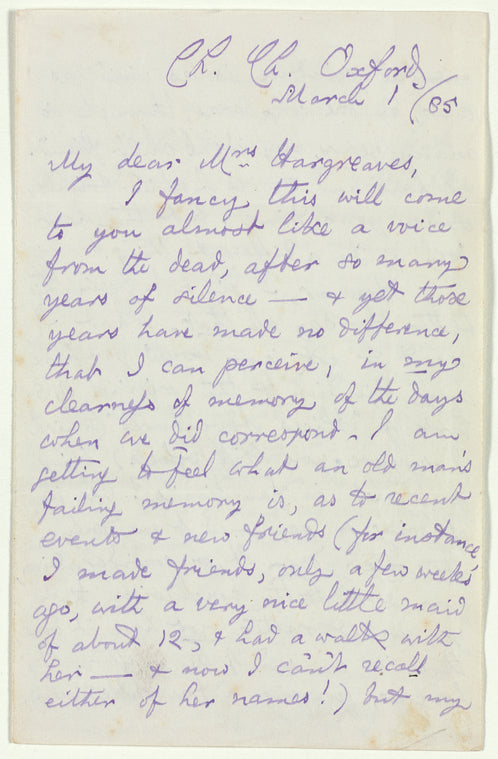 Ch. Ch. Oxford
March 1/85
My dear Mrs Hargreaves,
I fancy this will come
to you almost like a voice
from the dead, after so many
years of silence — & yet those
years have made no difference,
that I can perceive, in my
clearness of memory of the days
when we did correspond. I am
getting to feel what an old man's
failing memory is, as to recent
events & new friends (for instance,
I made friends, only a few weeks
ago, with a very nice little maid
of about 12, & had a walk with
her — & now I ca'n't recall
either of her names!) but my